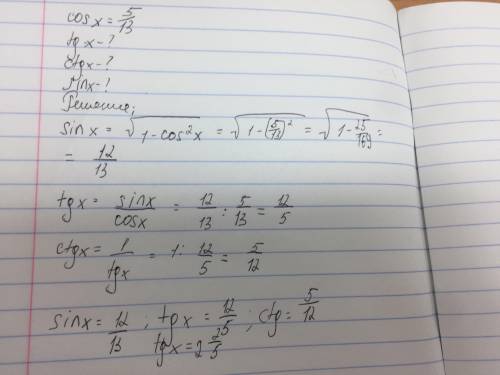 cos x = 5/13
tg x - ?
ctg x - ?
sin x - ?
Решение:
sin x = √(1 - cos²x) = √(1 - (5/13)²) = √(1 - 25/169) =
= 12/13
tg x = sin x / cos x = 12/13 : 5/13 = 12/5
ctg x = 1/tg x = 1 : 12/5 = 5/12
sin x = 12/13 ; tg x = 12/5 ; ctg = 5/12
tg x = 2 2/5